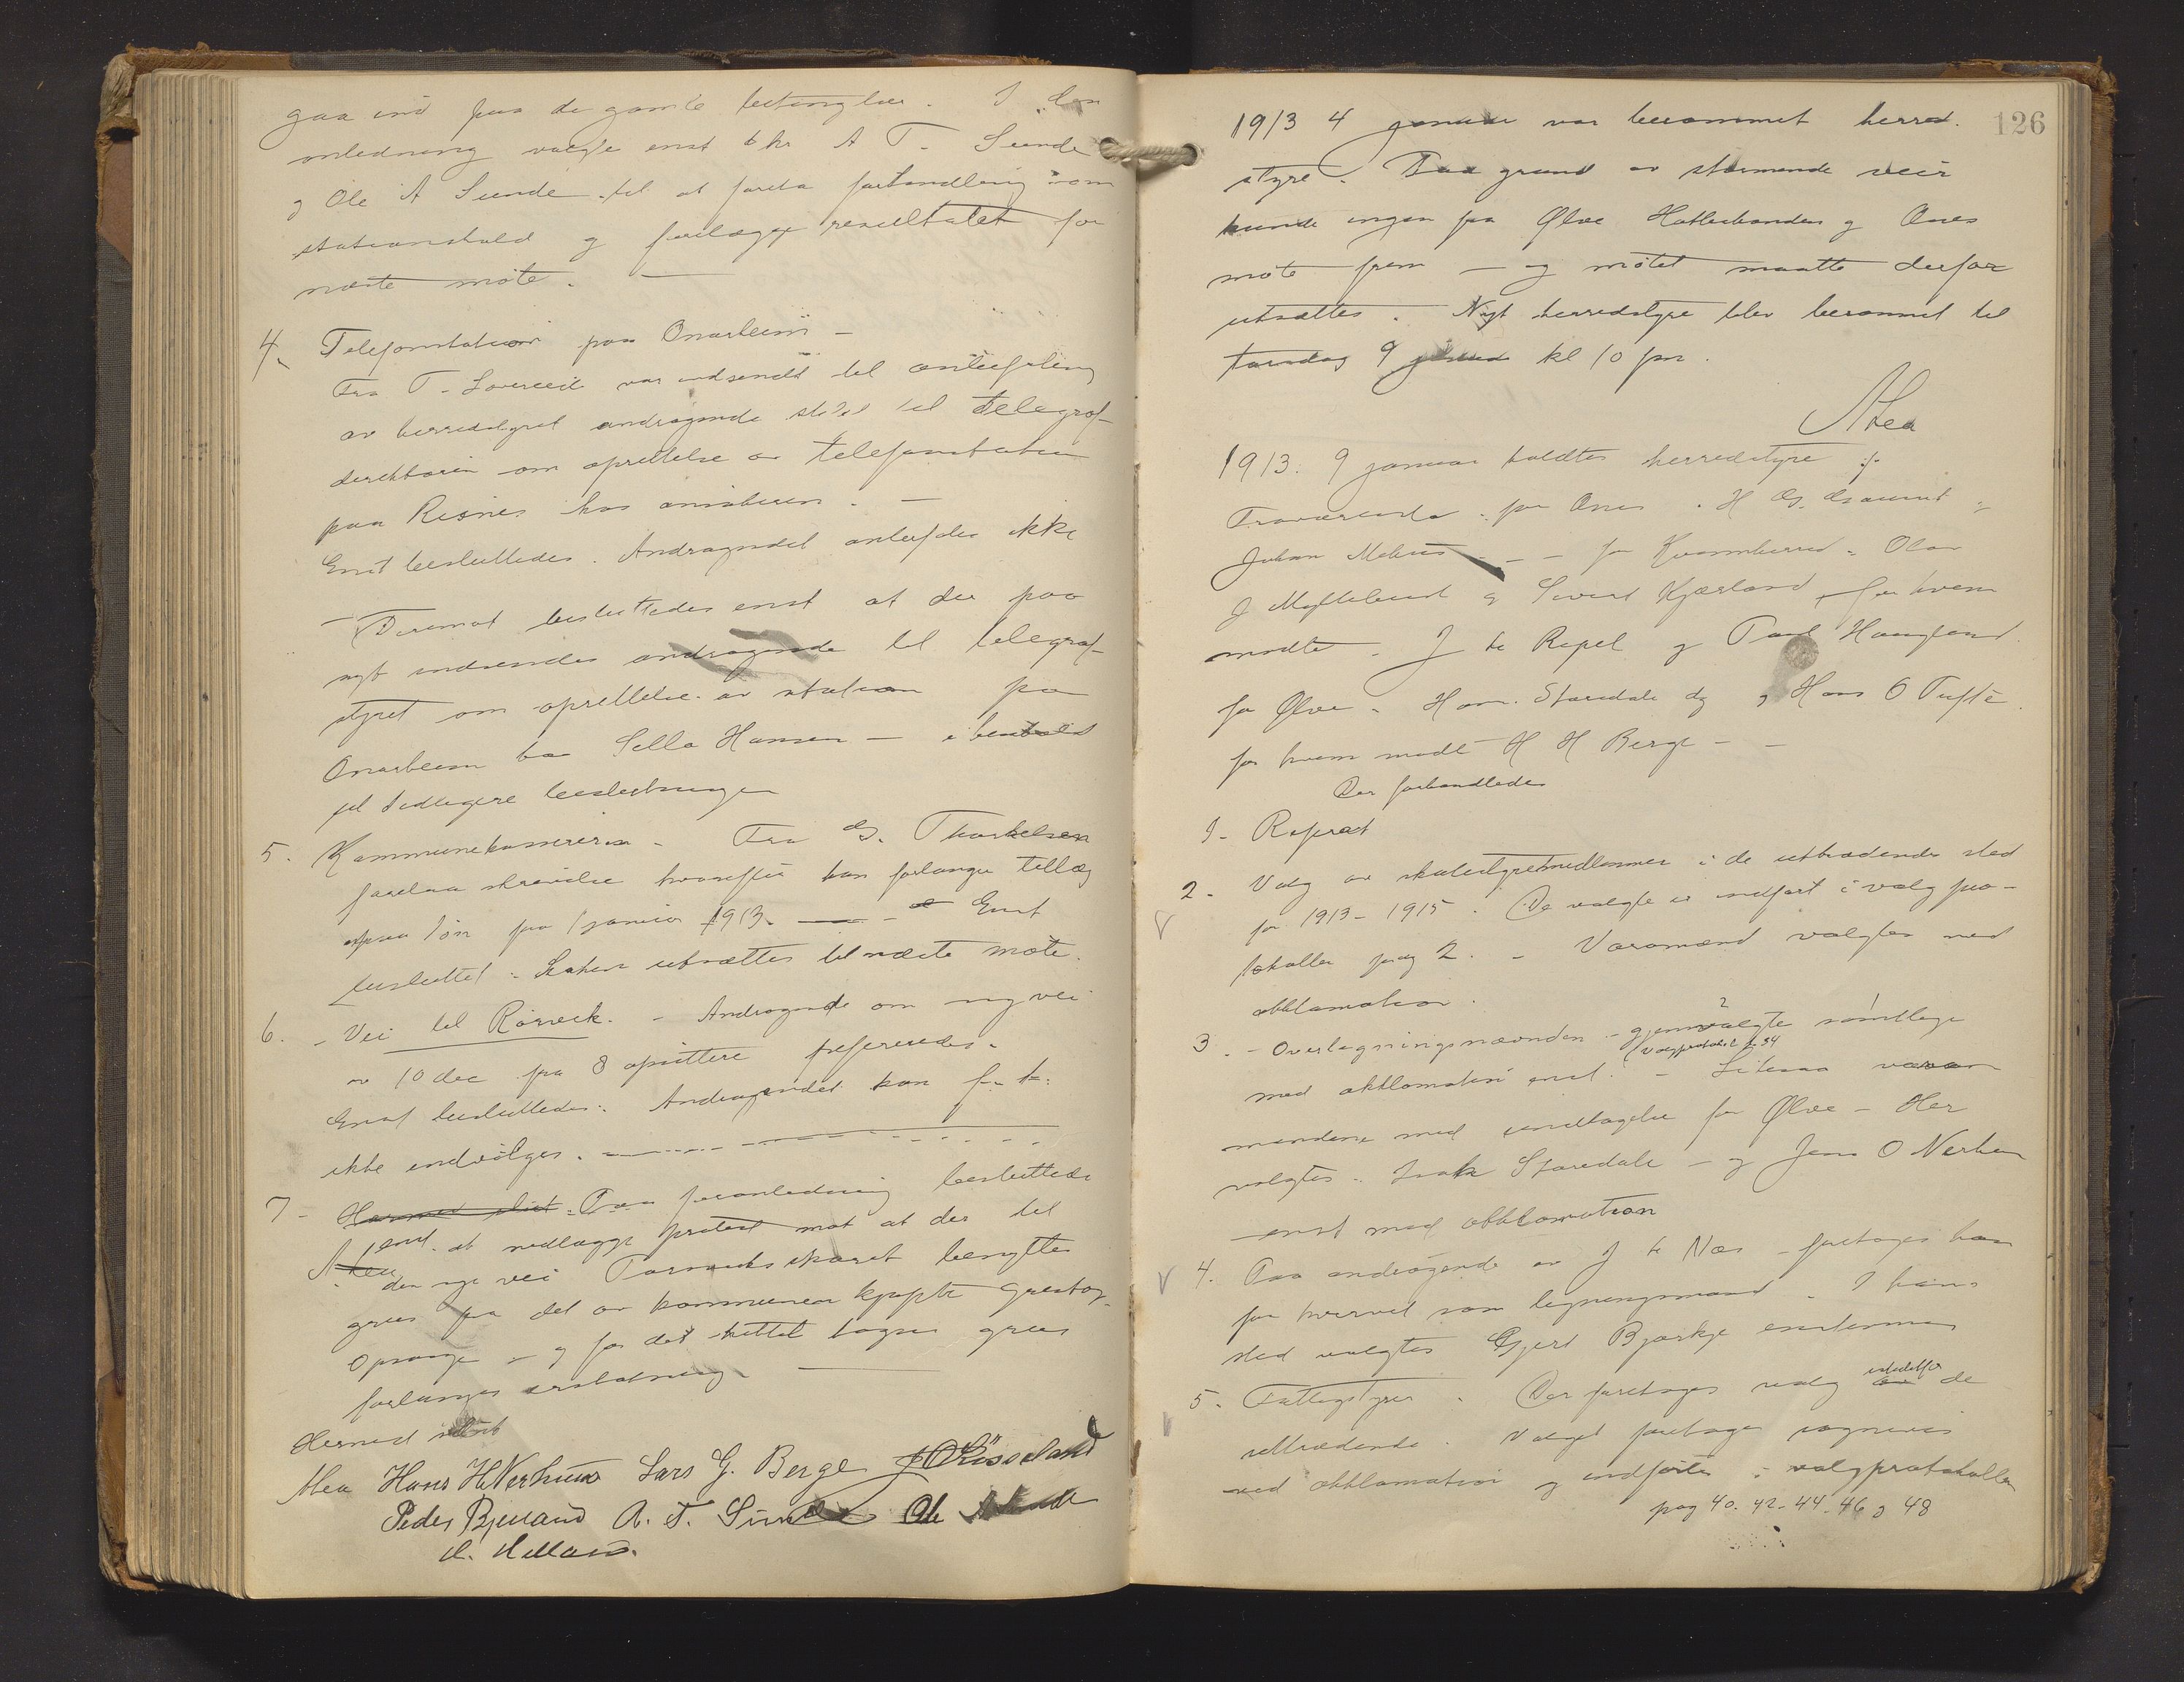 gaa ind paa de gamle betingelser. I den
anledning valgte enst hr A T. Sunde
og Ole A Sunde til at foreta forhandling om
stationshold og forelægge resultatet for
næste møte.
4. Telefonstation paa Onarheim -
Fra T. var indsendt til anbefaling
av herredstyret andragende stilet til telegraf-
direktøren om oprettelse av telefonstation
paa Risnes hos ansøkeren. -
Enst besluttedes. Andragendet anbefales ikke
- Derimot besluttedes enst at der paa
nyt indsendes andragende til telegraf-
styret om oprettelse av station paa
Onarheim hos Sella Hansen - i henhold
til tidligere beslutninger
5. Kommunekassereren - Fra G. Thorkelsen
forelaa skrivelse hvorefter han forlanger tillæg
i løn fra 1 januar 1913. - Enst
besluttet: Saken utsættes til næste møte.
6. - Vei til Rørvik. - Andragende om ny vei
av 10 dec fra 8 opsittere refereredes.
Enst besluttedes: Andragendet kan f. t.
ikke indvilges.
7 - Hermed slut. Paa foranledning besluttedes
enst. at nedlægge protest mot at der til
den nye vei benyttes
grus fra det av kommunen kjøpte grustag
- og for det hittil tagne grus
forlanges erstatning.
Hermed slut
AHea Hans H Nerhuus Lars G. Berge J O Røsseland
Peder Bjelland A. T. Sunde Ole A Sunde
H. Helland.
126
1913 4 januar var berammet herred.
styre. Paa grund av stormende veir
kunde ingen fra Ølve Hatlestranden og Ænes
møte frem - og møtet maatte derfor
utsættes. Nyt herredstyre blev berammet til
torsdag 9 januar kl 10 fm.
AHea
1913. 9 januar holdtes herredstyre
Fraværende. fra Ænes. H G.
Johan Mehus - - fra Kvamherred. Olav
J Myklebust og Sivert Kjærland, for hvem
mødte. J H Repel og Paul Haugland.
fra Ølve. Hans O Tufte
for hvem mødte H H Berge - -
Der forhandledes
1 - Referat
2 - Valg av skatestyremedlemmer i de uttrædendes sted
for 1913 - 1915. De valgte er indført i valgpro-
tokollen pag 2. - Varamænd valgtes ved
akklamation.
3. - Overligningsnævnden - gjenvalgte samtlige
2 1
(Valgprotokol p. 34
med akklamation enst. - Likesaa vara
mændene med undtagelse for Ølve - Her
valgtes. Isak - og Jens O Nerhus
- enst med akklamation
4. Paa andragende av J H Næs - fritages han
for hvervet som ligningsmand. I hans
sted valgtes Gjert Bjørkje enstemmig
5. Fattigstyret. Der foretages valg istedetfor de
uttrædende. Valget foretages sognevis
ved akklamation og indførtes i valgprotokollen
pag 40. 42. 44. 46 og 48